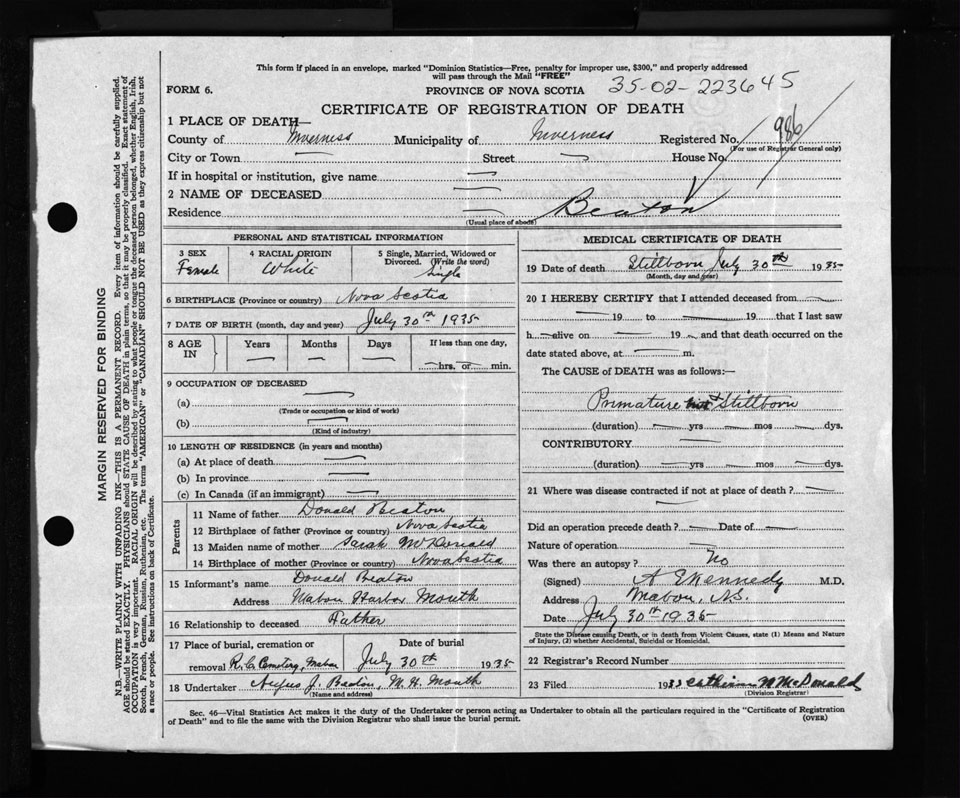 This form if placed in an envelope, marked "Dominion Statistics—Free, penalty for improper use, $300," and properly addressed
will pass through the Mail "FREE"
FORM 6.
PROVINCE OF NOVA SCOTIA 35-02-223645
CERTIFICATE OF REGISTRATION OF DEATH
1 PLACE OF DEATH—
County of Inverness Municipality of Inverness Registered No. 986
(For use of Registrar General only)
City or Town — Street — House No.
If in hospital or institution, give name —
2 NAME OF DECEASED — Beaton
Residence —
(Usual place of abode)
PERSONAL AND STATISTICAL INFORMATION
3 SEX 4 RACIAL ORIGIN 5 Single, Married, Widowed or
Divorced. (Write the word)
Female White Single
6 BIRTHPLACE (Province or country) Nova Scotia
7 DATE OF BIRTH (month, day and year) July 30th 1935
8 AGE IN Years Months Days If less than one day,
— — — — hrs. or — min.
9 OCCUPATION OF DECEASED
(a) —
(Trade or occupation or kind of work)
(b) —
(Kind of industry)
10 LENGTH OF RESIDENCE (in years and months)
(a) At place of death —
(b) In province —
(c) In Canada (if an immigrant) —
Parents
11 Name of father Donald Beaton
12 Birthplace of father (Province or country) Nova Scotia
13 Maiden name of mother Sarah McDonald
14 Birthplace of mother (Province or country) Nova Scotia
15 Informant's name Donald Beaton
Address Mabou Harbor Mouth
16 Relationship to deceased Father
17 Place of burial, cremation or Date of burial
removal R.C. Cemetery, Mabou July 30th 1935
18 Undertaker Angus J. Beaton, M. H. Mouth
(Name and address)
MEDICAL CERTIFICATE OF DEATH
19 Date of death Stillborn July 30th 1935
(Month, day and year)
20 I HEREBY CERTIFY that I attended deceased from —
— 19 to — 19 that I last saw
h — alive on — 19 — and that death occurred on the
date stated above, at — m.
The CAUSE of DEATH was as follows:—
Primature Stillborn
(duration) — yrs — mos — dys.
CONTRIBUTORY —
(duration) — yrs — mos — dys.
21 Where was disease contracted if not at place of death? —
Did an operation precede death? — Date of —
Nature of operation —
Was there an autopsy? No
(Signed) A E Kennedy M.D.
Address Mabou, N.S.
Date July 30th 1935
State the Disease causing Death, or in death from Violent Causes, state (1) Means and Nature
of Injury, (2) whether Accidental, Suicidal or Homicidal.
22 Registrar's Record Number
23 Filed 193 M McDonald
(Division Registrar)
Sec. 46—Vital Statistics Act makes it the duty of the Undertaker or person acting as Undertaker to obtain all the particulars required in the "Certificate of Registration
of Death" and to file the same with the Division Registrar who shall issue the burial permit. (OVER)
MARGIN RESERVED FOR BINDING
N.B.—WRITE PLAINLY WITH UNFADING INK—THIS IS A PERMANENT RECORD. Every item of information should be carefully supplied.
AGE should be stated EXACTLY. PHYSICIANS should STATE CAUSE OF DEATH in plain terms, so that it may be properly classified. Exact statement of
OCCUPATION is very important. RACIAL ORIGIN will be described by stating to what people or tongue the deceased person belonged, whether English, Irish,
Scotch, French, German, Russian, Ruthenian, etc. The terms "AMERICAN" or "CANADIAN" SHOULD NOT BE USED as they express citizenship but not
a race or people. See instructions on back of Certificate.